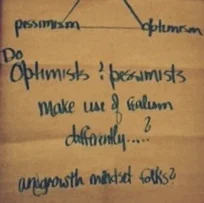 pessimism optimism
Do
Optimists & pessimists
make use of realism
differently.....?
growth mindset folks?